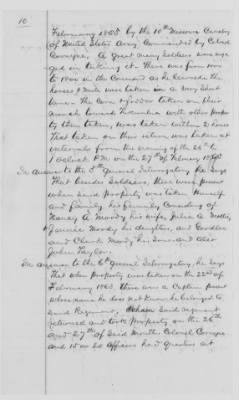 10
February 1865 by the 10th Missouri Cavalry
of United States Army, Commanded by Colonel
A great many Soldiers was engaged
in taking it. There was from 1000
to 1500 in the Command as he learned the
horses & Mule were taken in a very Short
time. The Corn & fodder taken on their
march toward Tuscumbia with other property
then taken, was taken within 2 hours
That taken on their return was taken at
intervals from the evening of the 26th to
1 o'clock P.M. on the 27th of February 1865
In Answer to the 5th General Interrogatory he says
That besides Soldiers, there were present
when said property was taken Himself
and family, his family Consisting of
Nancy A. Moody his wife, Julia A.
Moody his daughters, and
and Clark Moody his Sons and also
John Taylor.
In Answer to the 6th General Interrogatory, he says
That when property was taken on the 22nd of
February 1865 there was a Captain present
whose name he does not know he belonged to
said Regiment, When said regiment
returned and took property on the 26th
and 27th of said Month Colonel
and 15 or 20 Officers had Quarters at